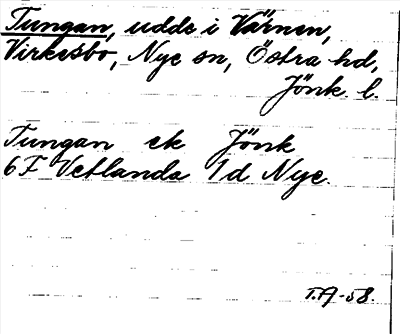 Tungan, udde i Värnen,
Virkesbo, Nye sn, Östra hd,
Jönk. l.
Tungan ek Jönk
6F Vetlanda 1d Nye.
T.A-58.